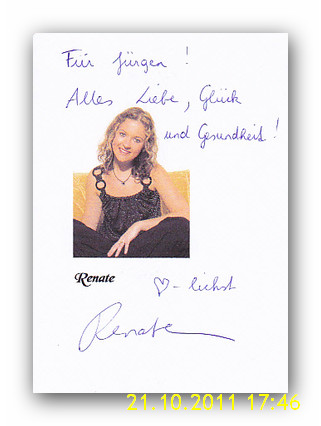 Für Jürgen !
Alles Liebe, Glück
und Gesundheit !
Renate
♡-lichst
Renate
21.10.2011 17:46